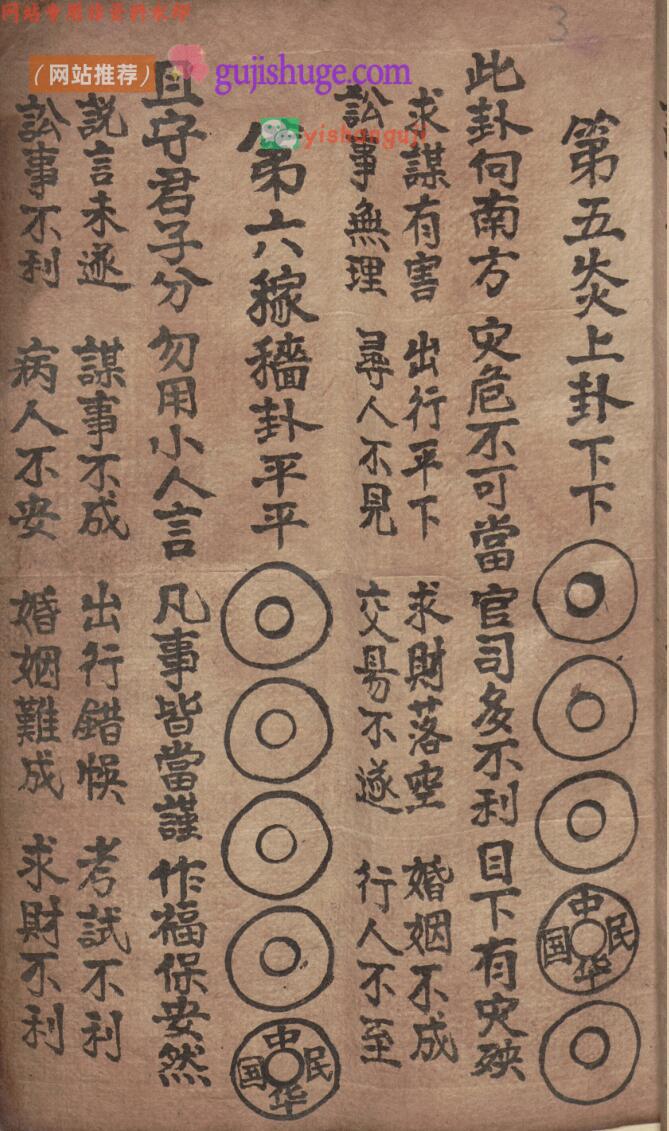 网站专用非资料水印
（网站推荐）
gujishuge.com
yishanguji
3
第五炎上卦下下
中華民国
此卦向南方 灾危不可當 官司多不利 目下有灾殃
求謀有害 出行平下 求財落空 婚姻不成
訟事無理 尋人不見 交易不遂 行人不至
第六稼穡卦平平
中華民国
且守君子分 勿用小人言 凡事皆當謹 作福保安然
説言未遂 謀事不成 出行錯悞 考試不利
訟事不利 病人不安 婚姻難成 求財不利